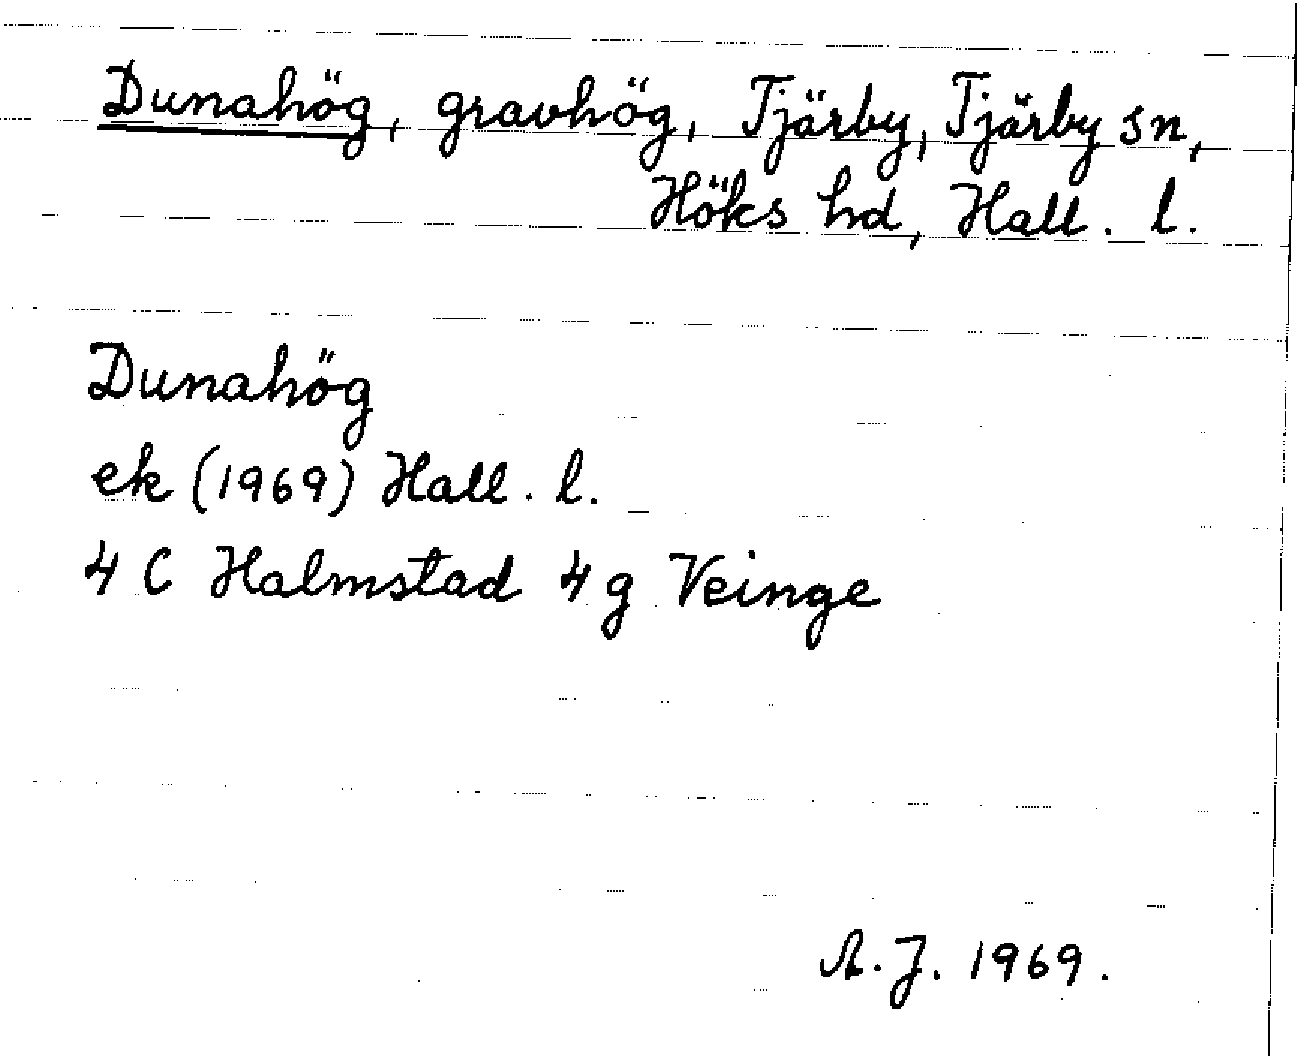 Dunahög, gravhög, Tjärby, Tjärby sn,
Höks hd, Hall. l.
Dunahög
ek (1969) Hall. l.
4 C Halmstad 4 g Veinge
A. J. 1969.